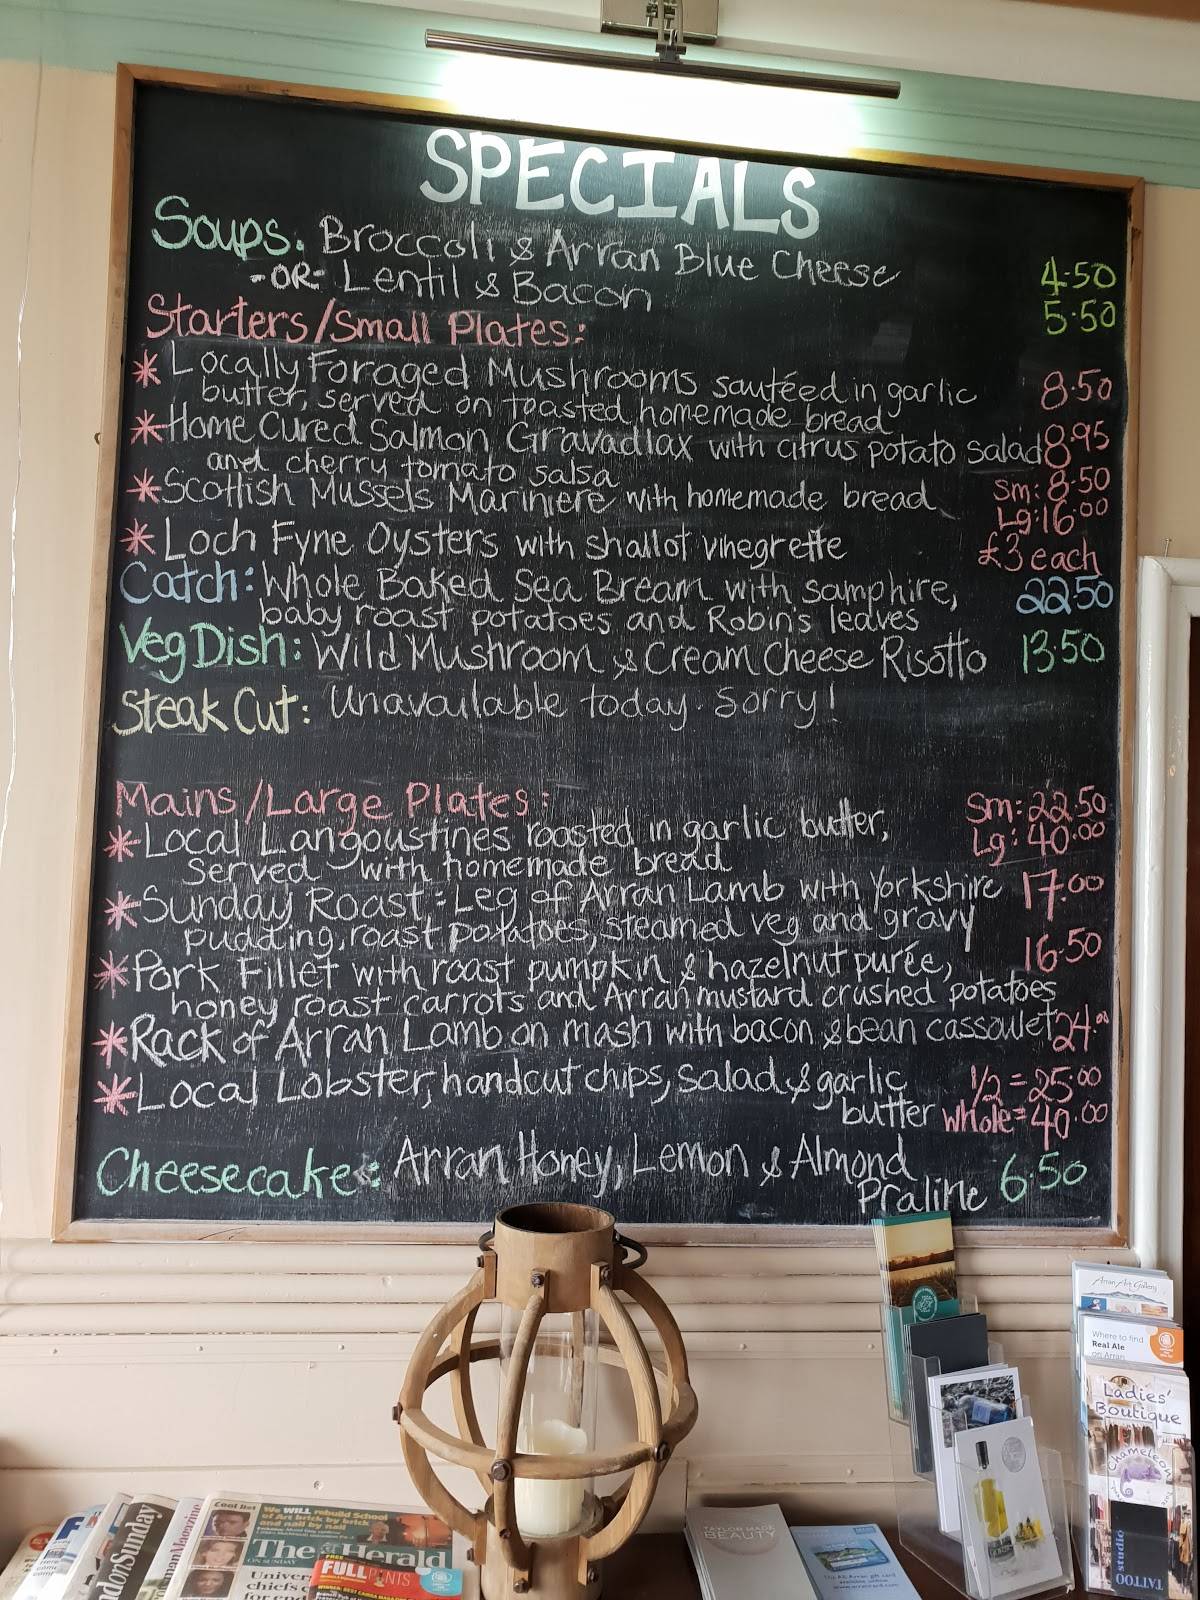 SPECIALS
Soups: Broccoli & Arran Blue Cheese 4.50
-OR- Lentil & Bacon 5.50
Starters/Small Plates:
* Locally Foraged Mushrooms sautéed in garlic 8.50
butter, served on toasted homemade bread
* Home Cured Salmon Gravadlax with citrus potato salad 8.95
and cherry tomato salsa
* Scottish Mussels Mariniere with homemade bread Sm: 8.50
Lg: 16.00
* Loch Fyne Oysters with shallot vinegrette £3 each
Catch: Whole Baked Sea Bream with samphire, 22.50
baby roast potatoes and Robin's leaves
Veg Dish: Wild Mushroom & Cream Cheese Risotto 13.50
Steak Cut: Unavailable today. Sorry!
Mains/Large Plates:
* Local Langoustines roasted in garlic butter, Sm: 22.50
served with homemade bread Lg: 40.00
* Sunday Roast: Leg of Arran Lamb with Yorkshire 17.00
pudding, roast potatoes, steamed veg and gravy
* Pork Fillet with roast pumpkin & hazelnut purée, 16.50
honey roast carrots and Arran mustard crushed potatoes
* Rack of Arran Lamb on mash with bacon & bean cassoulet 24.00
* Local Lobster, handcut chips, salad & garlic 1/2 = 25.00
butter whole = 40.00
Cheesecake: Arran Honey, Lemon & Almond
Praline 6.50
Arran Art Gallery
Where to find
Real Ale
on Arran
Ladies'
Boutique
Chameleon
TATTOO
studio
TAYLOR MADE
BEAUTY
Cool list
We WILL rebuild School
of Art brick by brick
and nail by nail
The Herald
ON SUNDAY
FREE
FULL PINTS
Univer
chiefs
for end
Magazine
ndonSunday